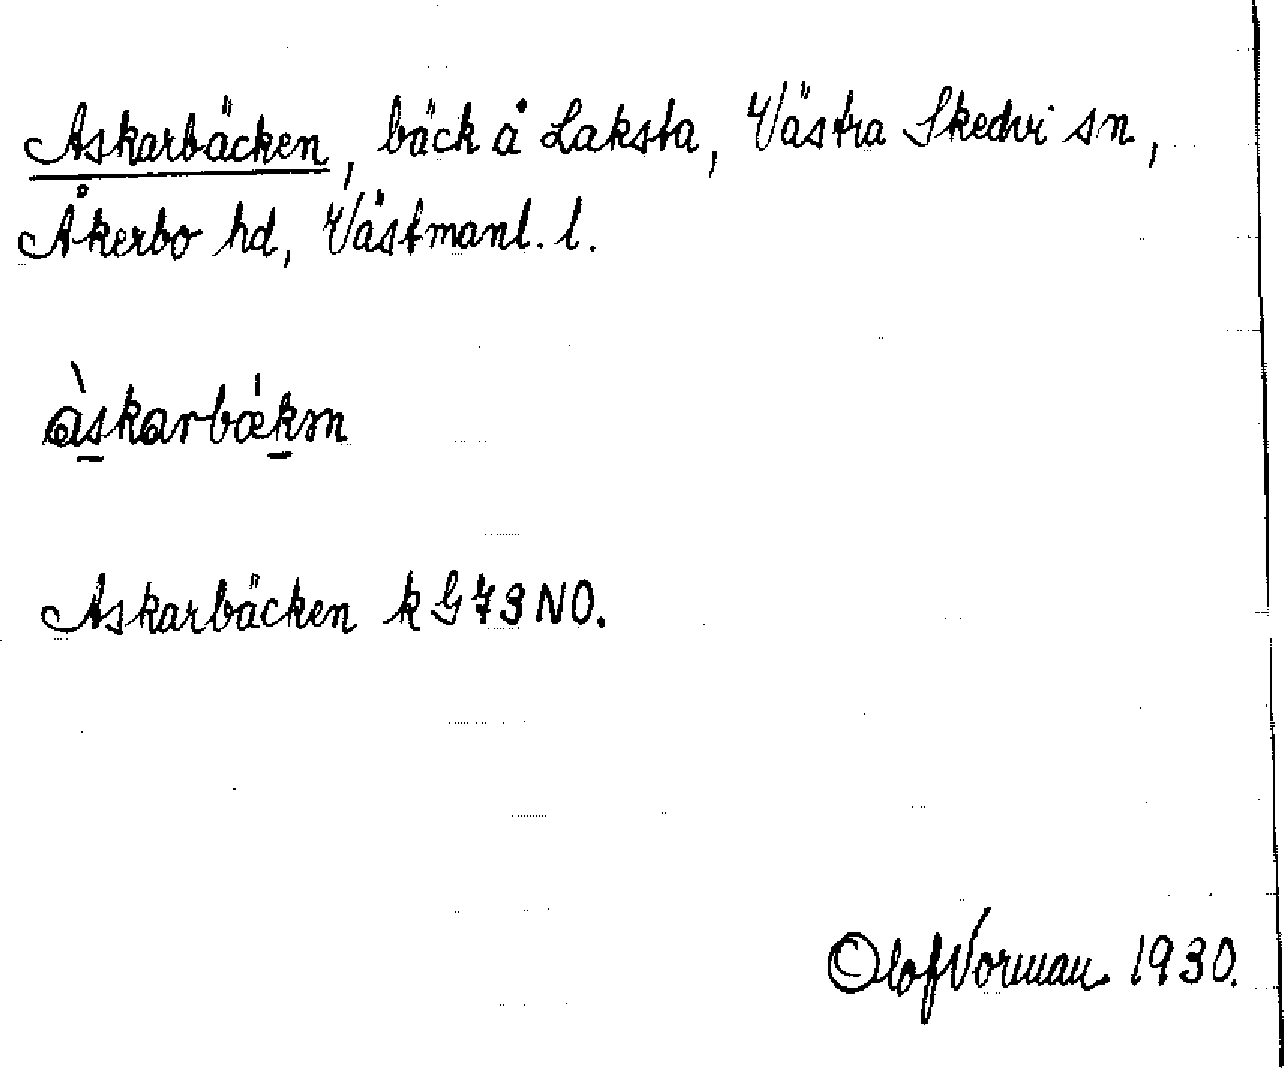 Askarbäcken, bäck å Laksta, Västra Skedvi sn,
Åkerbo hd, Västmanl. l.
àskarbækən
Askarbäcken k G 73 NO.
Olof Vorman 1930.